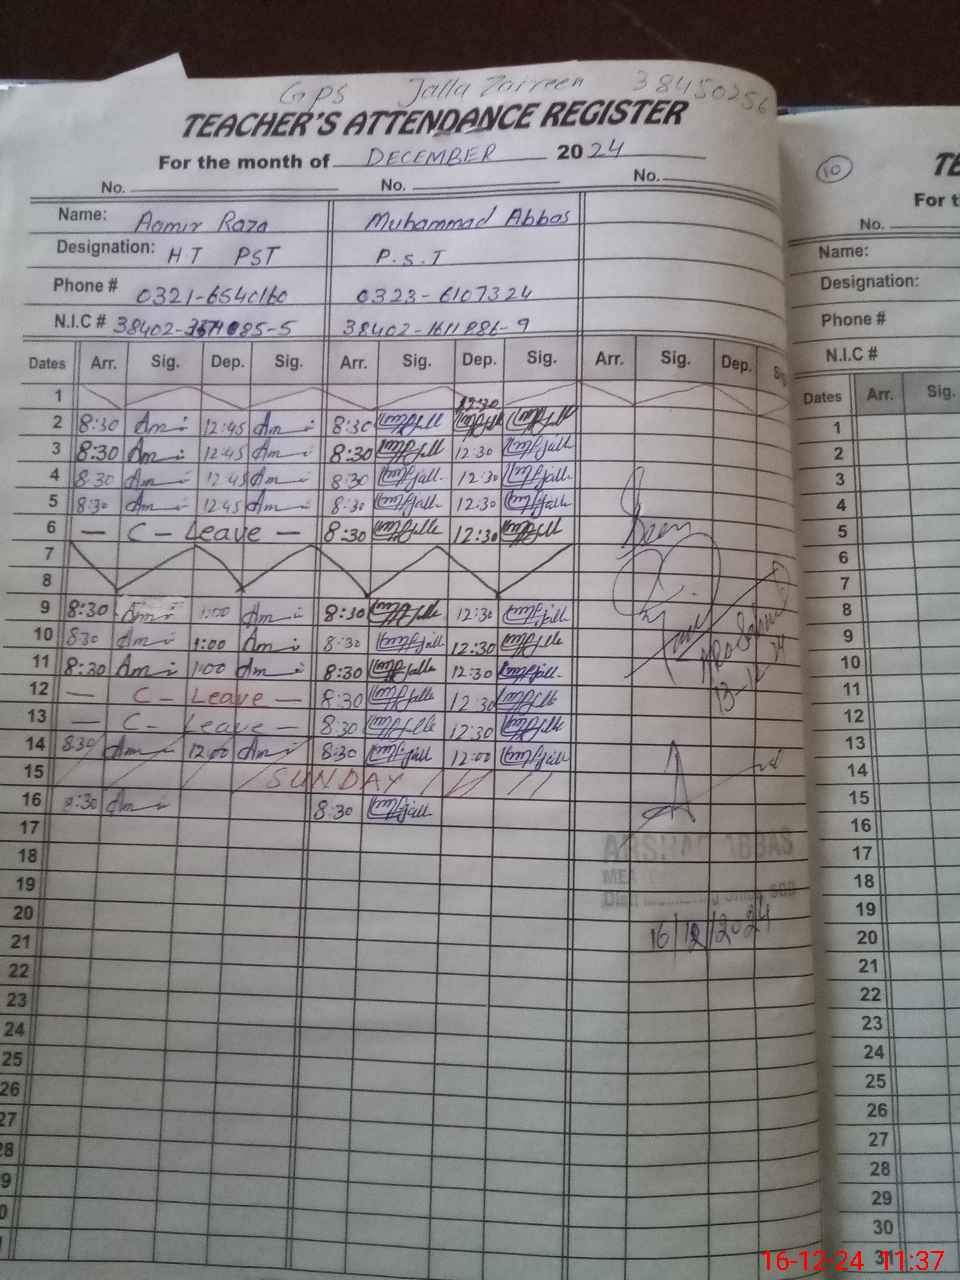 GPS Jalla Zarreen 38450256
TEACHER'S ATTENDANCE REGISTER
For the month of DECEMBER 2024
No. No. No.
Name: Aamir Raza Muhammad Abbas
Designation: HT PST P.S.T
Phone # 0321-6540160 0323-6107324
N.I.C # 38402- 085-5 38402-1611886-9
Dates Arr. Sig. Dep. Sig. Arr. Sig. Dep. Sig. Arr. Sig. Dep. Sig
1
12:30
2 8:30 12:45 8:30
3 8:30 12:45 8:30 12:30
4 8:30 12:45 8:30 12:30
5 8:30 12:45 8:30 12:30
6 — C - Leave — 8:30 12:30
7
8
9 8:30 1:00 8:30 12:30
10 8:30 1:00 8:30 12:30
11 8:30 1:00 8:30 12:30
12 — C - Leave — 8:30 12:30
13 — C - Leave — 8:30 12:30
14 8:30 12:00 8:30 12:00
15 SUNDAY
16 8:30 8:30
17
18
19
20
21
22
23
24
25
26
27
28
9
0
13-12-24
ABBAS
MEA
16/12/2024
10
TE
For t
No.
Name:
Designation:
Phone #
N.I.C #
Dates Arr. Sig.
1
2
3
4
5
6
7
8
9
10
11
12
13
14
15
16
17
18
19
20
21
22
23
24
25
26
27
28
29
30
31
16-12-24 11:37